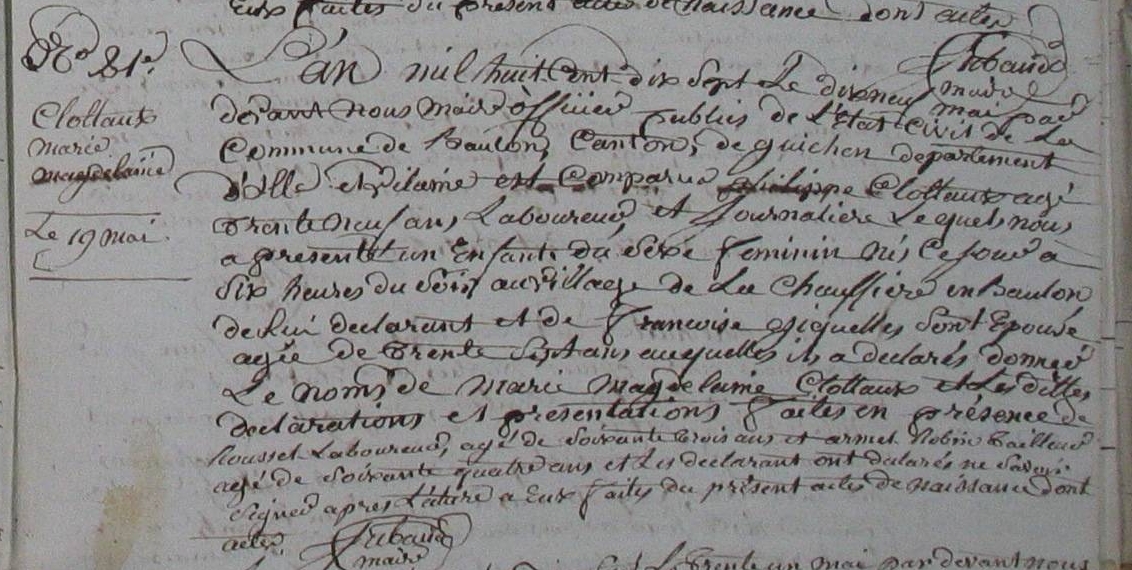 Eux faites du présent acte de naissance dont acte
No 21e
Clottaux
marie
magdelaine
Le 19 mai
Lán mil huit Cent dix sept Le dixneuf mai par
maire
devant nous Maire officier publis de L'état Civil de La
Commune de Baulon, Canton, de guichen departement
d'ille et vilaine est Comparu philippe Clottaux agé
trente neuf ans, Laboureur et Journaliere Lequel nous
a presenté un Enfant du sexe feminin né Ce jour à
Six heures du soir au village de La Chauffiere en Baulon
de Lui declarant et de francoise son Epouse
agée de trente Sept ans auquelles ils a declarés donner
Le noms de marie magdelaine Clottaux et Les dittes
declarations et présentations faites en présence de
Rousset Laboureur, agé de soixante trois ans et armel tailleur
agé de soixante quatre ans et Les declarant ont declarés ne savoir
signer apres Lecture a Eux faites du présent actes de naissance dont
acte
maire
Est Le trente un mai par devant nous